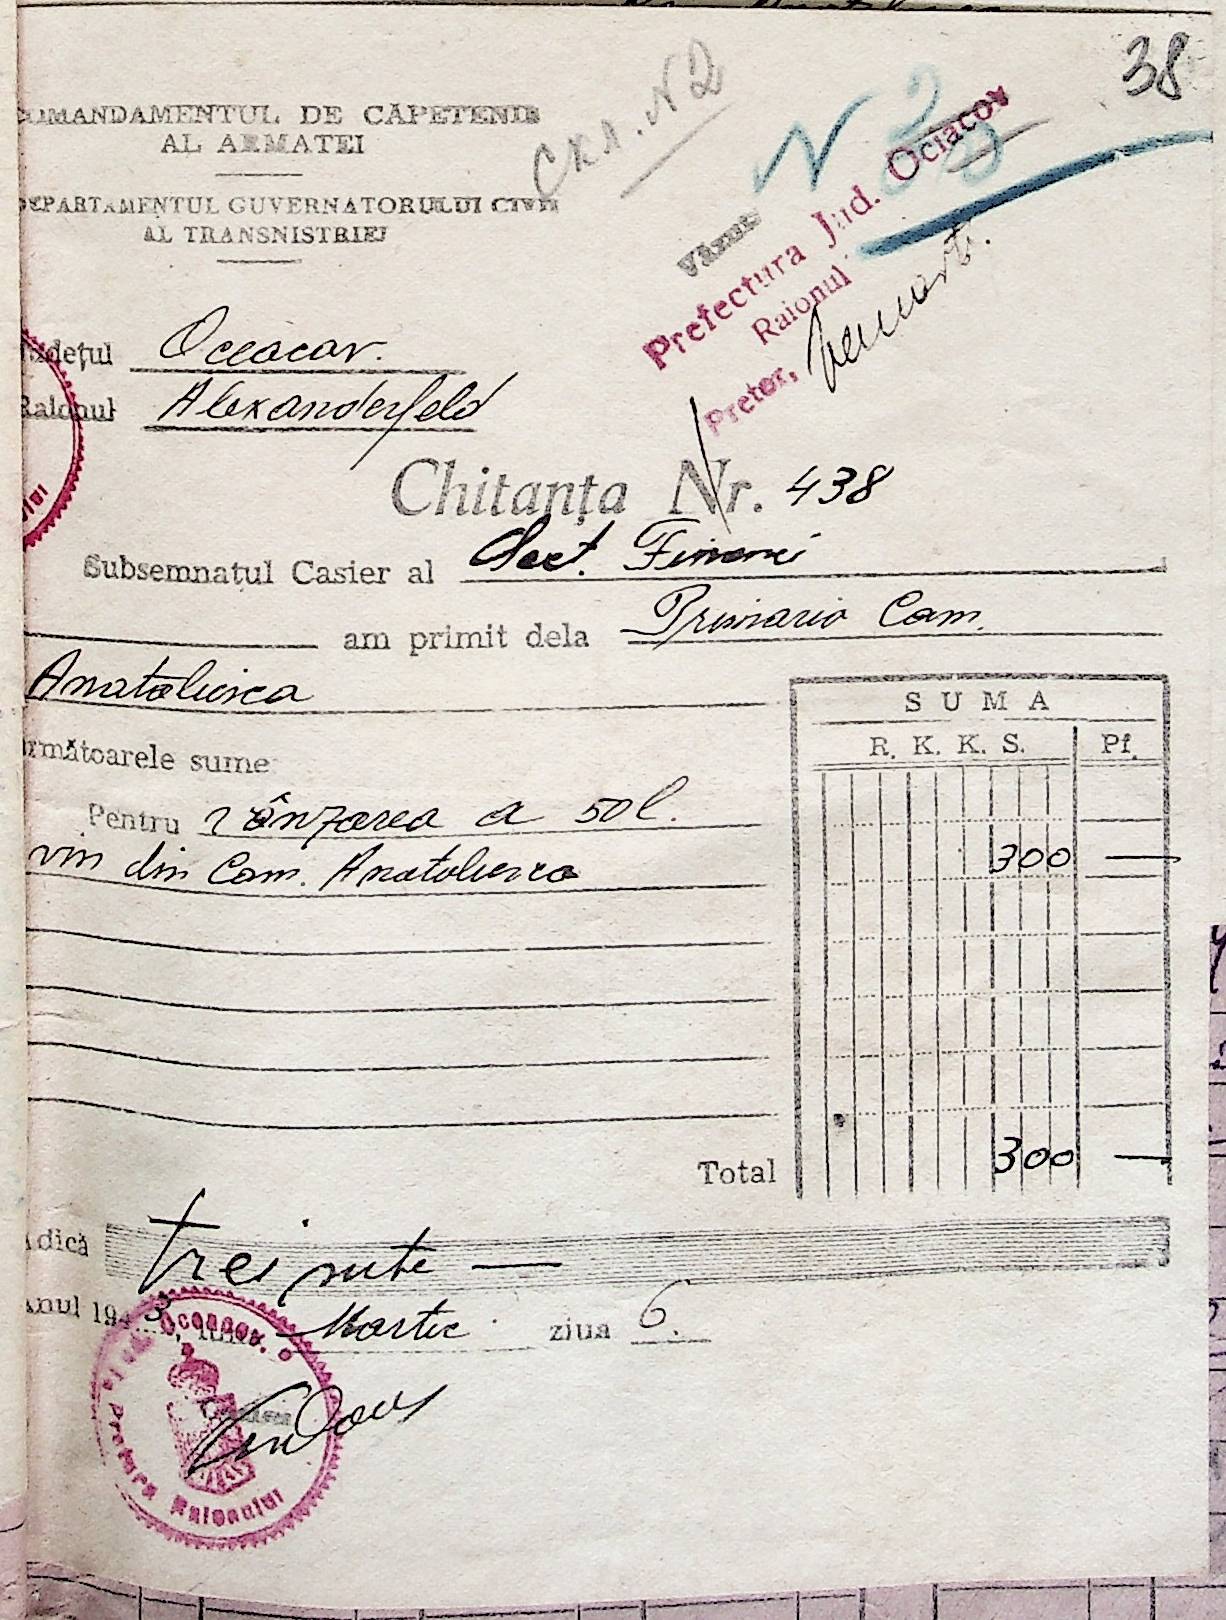 38
Скл. N 2
COMANDAMENTUL DE CĂPETENIE
AL ARMATEI
DEPARTAMENTUL GUVERNATORULUI CIVIL
AL TRANSNISTRIEI
Văzut
Prefectura Jud. Ociacov
Raionul
Pretor,
Județul Oceacov.
Raionul Alexanderfeld
Chitanța Nr. 438
Subsemnatul Casier al Sect. Financi
am primit dela Primaria Com.
Anatoliewca
următoarele sume
Pentru vânzarea a 50 l.
vin din Com. Anatoliewca
SUMA
R. K. K. S. Pf.
300 —
Total 300 —
Adică trei sute —
Anul 1943, luna Martie ziua 6.
Casier
Pretura Raionului